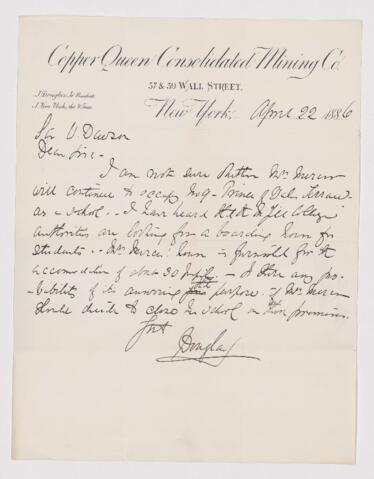 Copper Queen Consolidated Mining Co.
57 & 59 WALL STREET.
J. Douglas, Jr. President
New York, April 22 1886
Sir W. Dawson
Dear Sir -
I am not sure whether Mrs Mercer
will continue to occupy No 9 - Prince of Wales Terrace
as a school - I have heard that the McGill College
authorities are looking for a boarding house for
students - Mrs Mercer's house is furnished for the
accomodation of about 30 - Is there any pro-
bability of its answering the purpose if Mrs Mercer
should decide to close her school on those premises
J Douglas